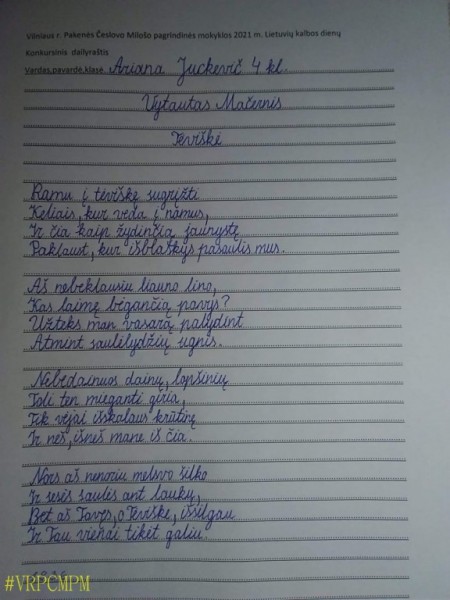 Vilniaus r. Pakenės Česlovo Milošo pagrindinės mokyklos 2021 m. Lietuvių kalbos dienų
Konkursinis dailyraštis
Vardas,pavardė,klasė. Ariana Juckevič 4 kl.
Vytautas Mačernis
Tėviškė
Ramu į tėviškę sugrįžti
Keliais, kur veda į namus,
Ir čia kaip žydinčią jaunystę
Paklaust, kur išblaškys pasaulis mus.
Aš nebeklausiu liauno lino,
Kas laimę bėgančią pavys?
Užteks man vasarą palydint
Atmint saulėlydžių ugnis.
Nebedainuos dainų, lopšinių
Toli ten mieganti giria,
Tik vėjai išskalaus krūtinę
Ir neš, išneš mane iš čia.
Nors aš nenoriu melsvo šilko
Ir sesės saulės ant laukų,
Bet aš Tavęs, o Tėviške, išsilgau
Ir Tau vienai tikėt galiu.
1936
#VRPCMPM